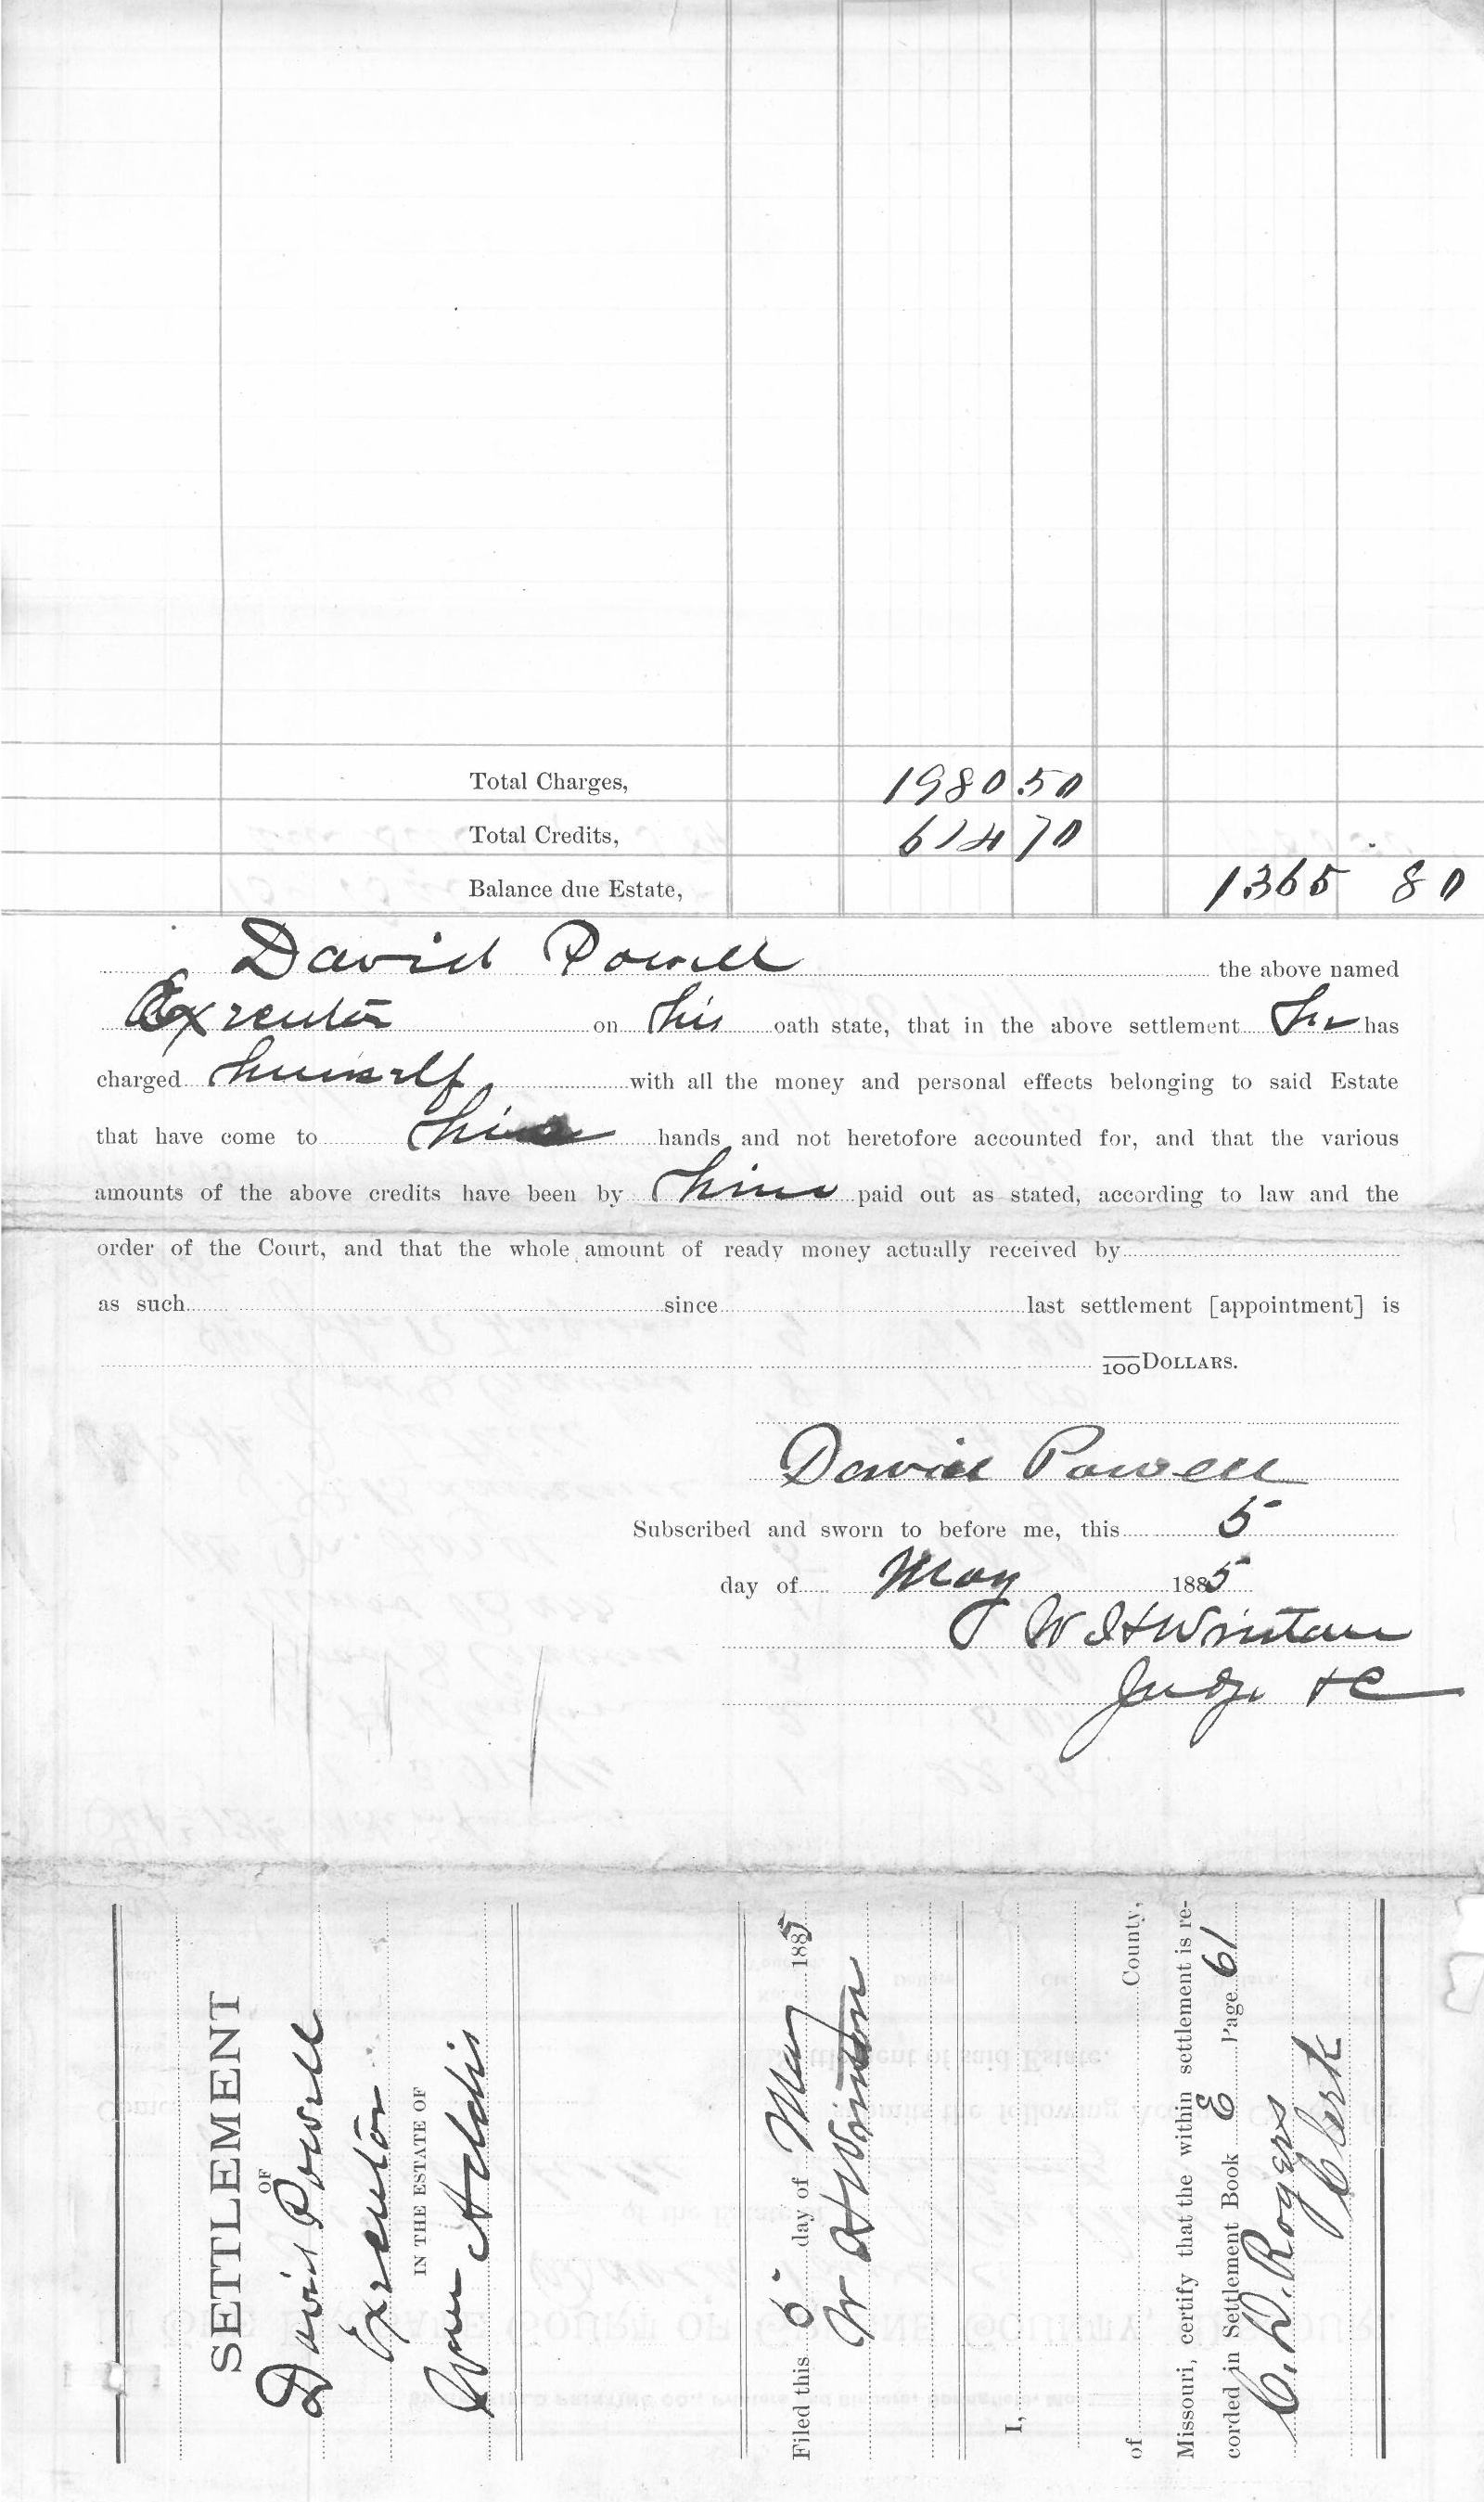 Total Charges, 1980 50
Total Credits, 614 70
Balance due Estate, 1365 80
David Powell the above named
Executor on his oath state, that in the above settlement he has
charged himself with all the money and personal effects belonging to said Estate
that have come to his hands and not heretofore accounted for, and that the various
amounts of the above credits have been by him paid out as stated, according to law and the
order of the Court, and that the whole amount of ready money actually received by
as such since last settlement [appointment] is
/100 DOLLARS.
David Powell
Subscribed and sworn to before me, this 5
day of May 1885
Judge &C
SETTLEMENT
OF
David Powell
Executor
IN THE ESTATE OF
Filed this 5 day of May 1885
W H Winton
I,
of County,
Missouri, certify that the within settlement is re-
corded in Settlement Book E Page 61
C. D. Rogers
Clerk